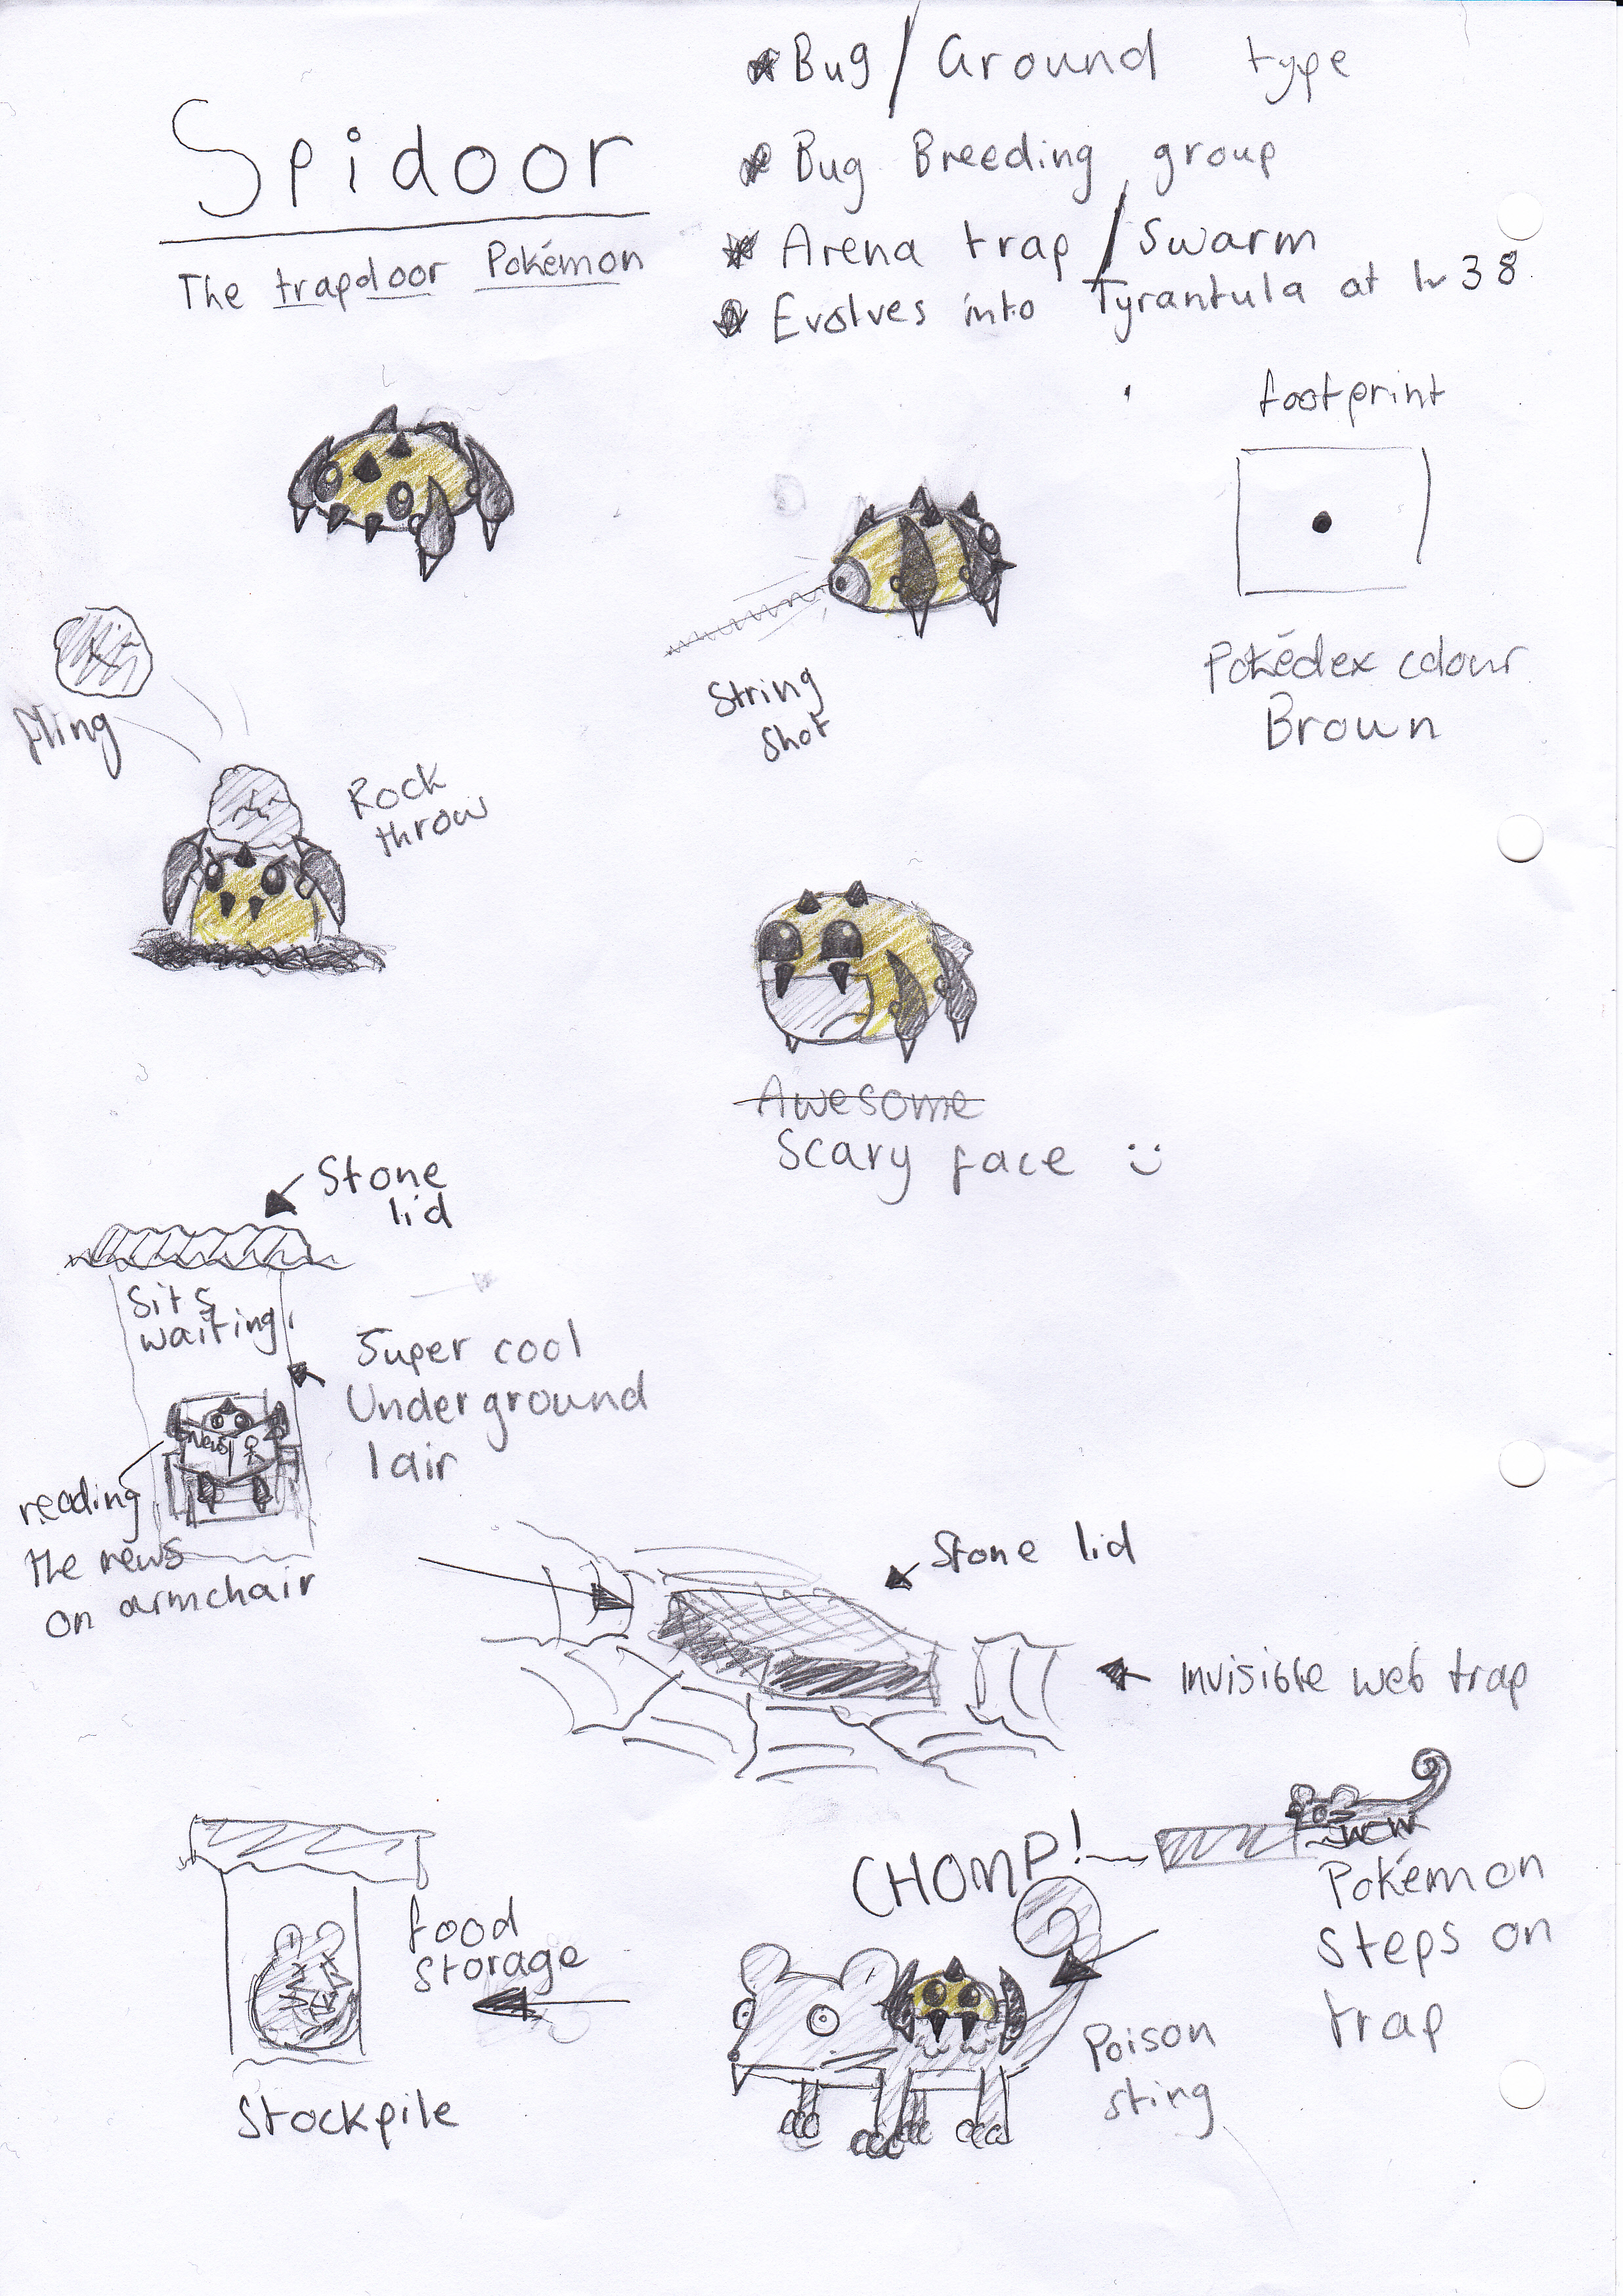 Spidoor
The trapdoor Pokémon
Bug/Ground type
Bug Breeding group
Arena trap/Swarm
Evolves into Tyrantula at lv 38
footprint
Pokédex colour
Brown
String
Shot
fling
Rock
throw
Awesome
Scary face :)
Stone
lid
Sits
waiting
Super cool
Underground
lair
News
reading
the news
on armchair
Stone lid
invisible web trap
Pokémon
steps on
trap
CHOMP!
Poison
sting
food
storage
Stockpile